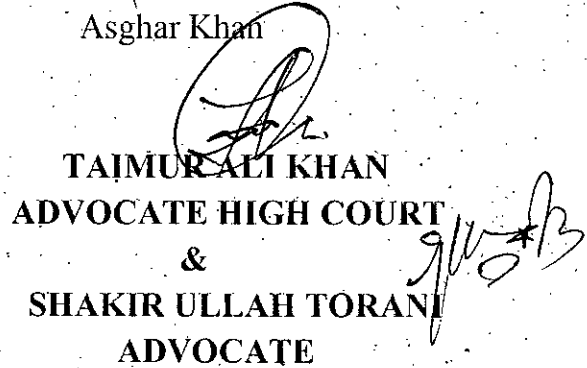 Asghar Khan
TAIMUR ALI KHAN
ADVOCATE HIGH COURT
&
SHAKIR ULLAH TORANI
ADVOCATE